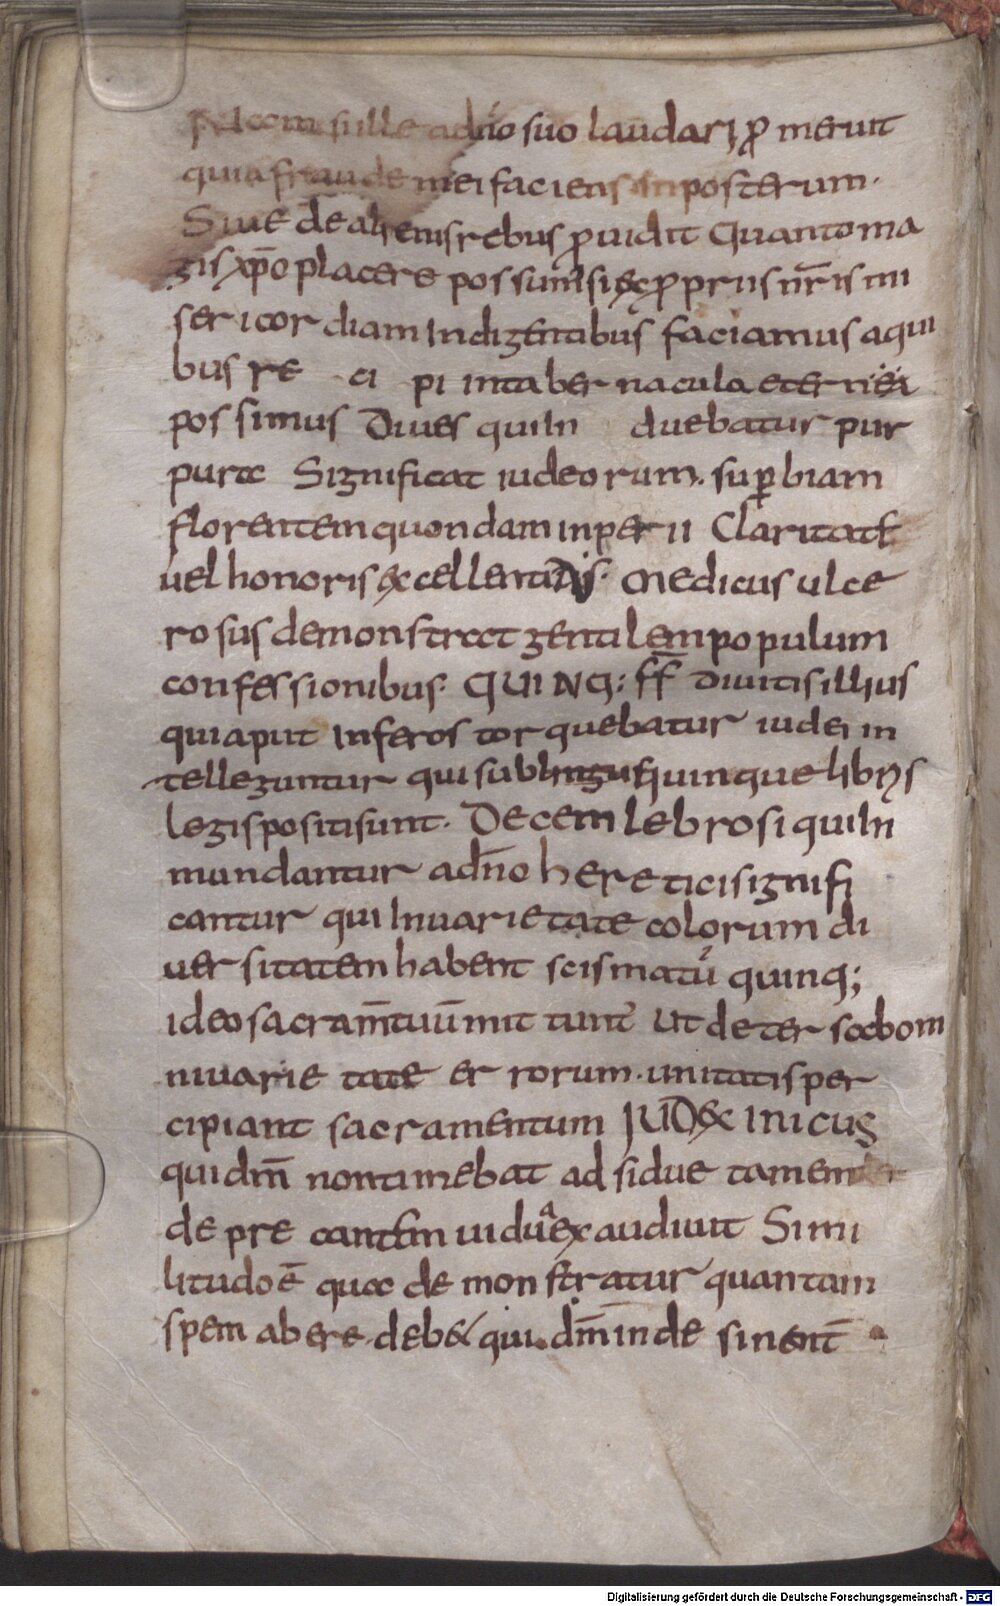 suo laudari ꝓ meruit
quia fraudem ei faciens in posterum.
Siue de alienis rebus ꝓuidit Quanto ma
gis xp̄o placere possumus si & ꝓpriis nr̄is mi
sericordiam Indigentibus faciamus a qui
bus re ci pi in tabernacula eterna
possimus Diues qui In duebatur pur
pura Significat iudeorum. sup̱biam
florentem quondam inperii Claritate
uel honoris excellentis. medicus ulce
rosus demonstrat gentilem populum
confessionibus. QUINQ: ff̄ diuitis illius
qui aput Inferos torquebatur iudei in
telleguntur qui sub quinque libris
legis positi sunt. Decem lebrosi qui In
mundantur a dn̄o heretici signifi
cantur qui In uarietate colorum di
uersitatem habent scismatū quinq;
ideo sacram̄tuūm mittunt Ut deterso ab om
ni uarietate errorum. unitatis per
cipiant sacramentum IUDEX INICUS
qui dm̄ non timebat adsidue tamen
deprecantem uiduā exaudiuit Simi
litudo ē quae demonstratur quantam
spem abere deb& qui dm̄ indesinent̄
Digitalisierung gefördert durch die Deutsche Forschungsgemeinschaft - DFG